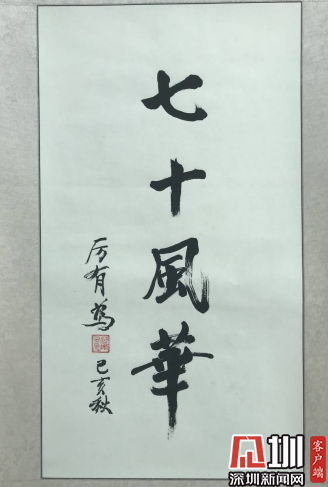 七十風華
厉有為
己亥秋
深圳新闻网
客户端